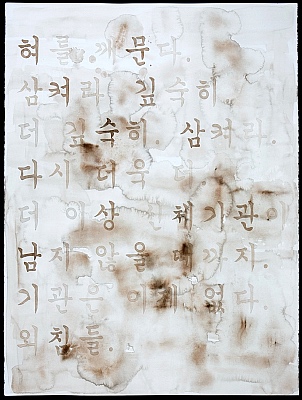 혀를 깨문다.
삼켜라 깊숙히
더 깊숙히. 삼켜라.
다시 더욱 다.
더 이상 신체기관이
남지 않을 때까지.
기관은 이제 없다.
외침들.